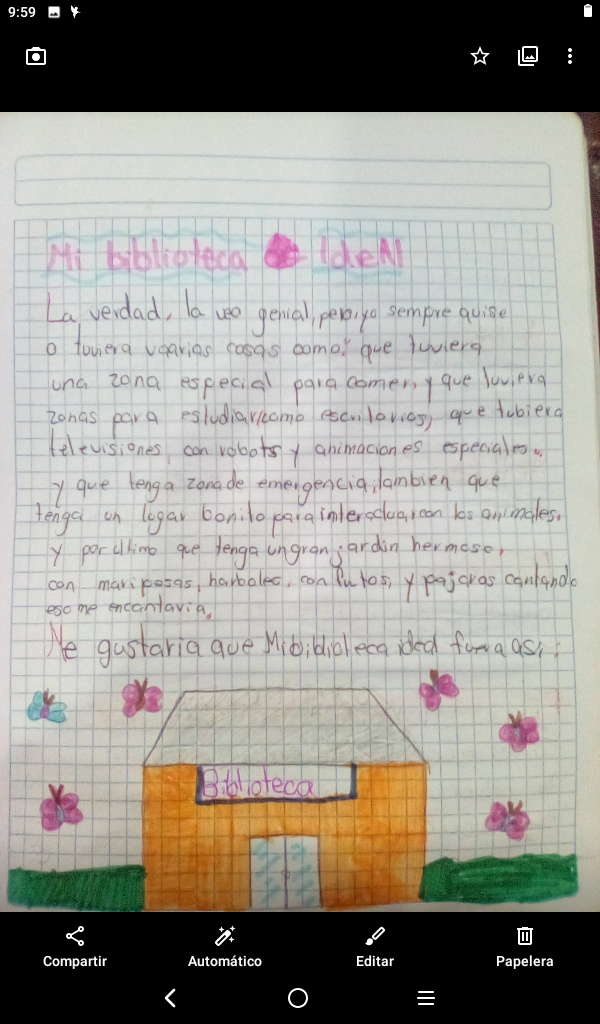 9:59
Mi biblioteca IdeAl
La verdad, la veo genial, pero yo sempre quise
o tuviera vaarias cosas como: que tuviera
una zona especial para comer, y que tuviera
zonas para estudiar, como escritorios, que tubiera
televisiones, con robots y animaciones especiales.
y que tenga zona de emergencia, tambien que
tenga un lugar bonito para interactuar con los animales.
y por ultimo que tenga un gran jardin hermoso,
con mariposas, harboles, con frutos, y pajaros cantando
eso me encantaria.
Me gustaria que Mi biblioteca ideal fuera asi:
Biblioteca
Compartir Automático Editar Papelera